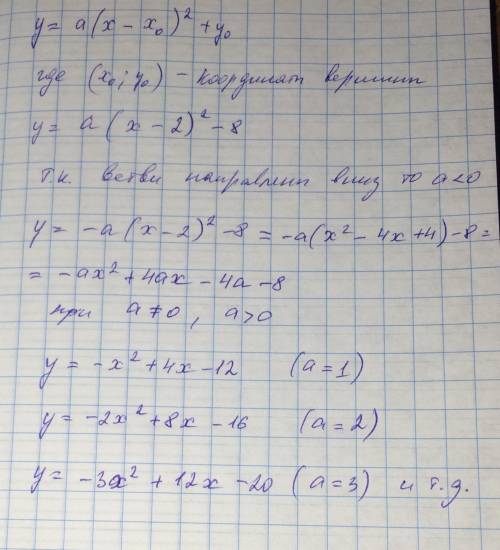 y = a(x - x₀)² + y₀
где (x₀; y₀) - координаты вершины
y = a(x - 2)² - 8
т.к. ветви направлены вниз то a<0
y = -a(x - 2)² - 8 = -a(x² - 4x + 4) - 8 =
= -ax² + 4ax - 4a - 8
при a ≠ 0, a > 0
y = -x² + 4x - 12 (a = 1)
y = -2x² + 8x - 16 (a = 2)
y = -3x² + 12x - 20 (a = 3) и т.д.